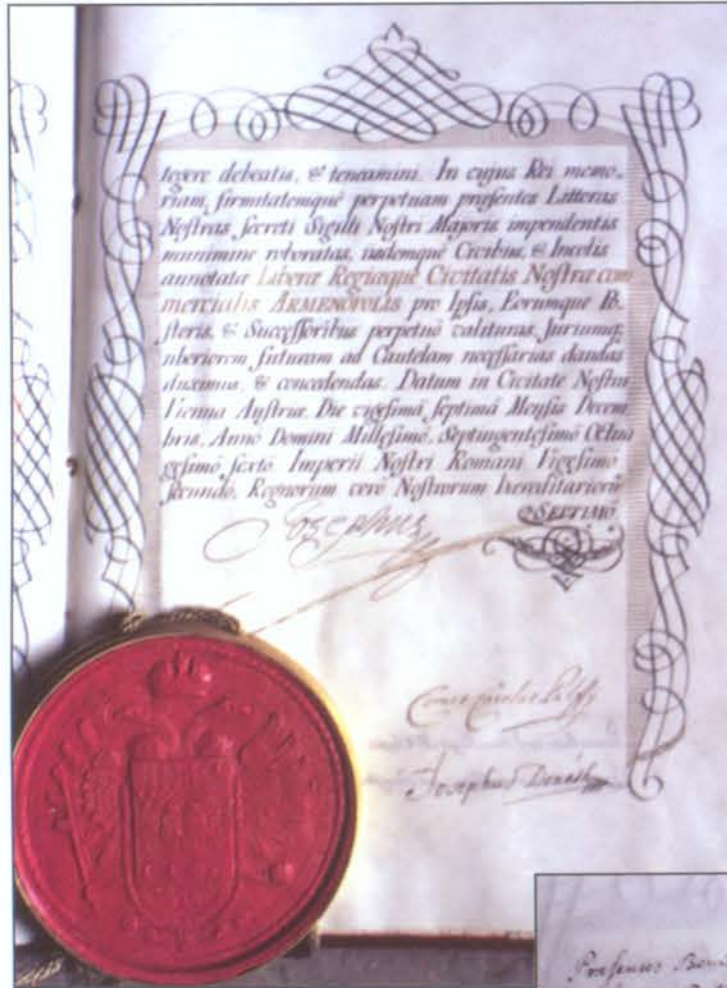 tegere debeatis, & teneamini. In cujus Rei memo-
riam, firmitatemque perpetuam præsentes Litteras
Nostras secreti Sigilli Nostri Majoris impendentis
munimine roboratas, iisdemque Civibus, & Incolis
annotatæ Liberæ Regiæque Civitatis Nostræ com
mercialis ARMENOPOLIS pro Ipsis, Eorumque Po-
steris, & Successoribus perpetuò valituras, Juriumq
uberiorem futuram ad Cautelam necessarias dandas
duximus, & concedendas. Datum in Civitate Nostra
Vienna Austriæ. Die vigesimâ septimâ Mensis Decem
bris, Annô Domini Millesimô, Septingentesimô Octua
gesimô sextô Imperii Nostri Romani Vigesimô
secundô, Regnorum verò Nostrorum hæreditariorũ
SEPTIMÔ.
Josephus
Comes Carolus Palffy
Josephus Donáth
Præsentes